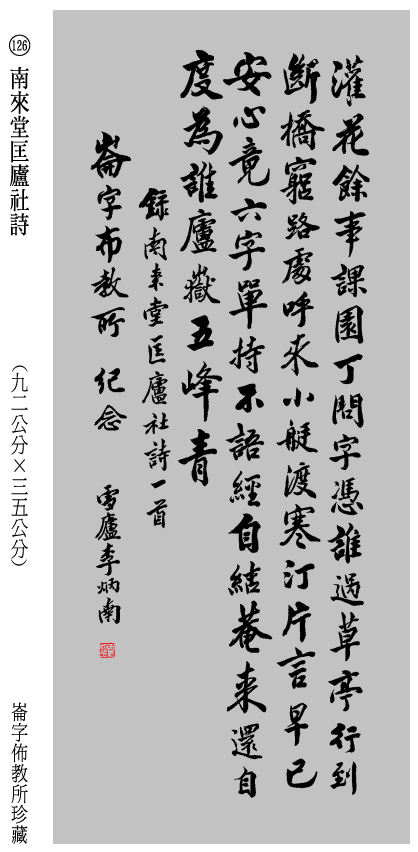 灌花餘事課園丁問字憑誰過草亭行到
斷橋窮路處呼來小艇渡寒汀片言早已
安心竟六字單持不語經自結菴来還自
度為誰廬嶽五峰青
錄南来堂匡廬社詩一首
崙字布教所 紀念 雪廬李炳南
126 南來堂匡廬社詩 (九二公分×三五公分) 崙字佈教所珍藏